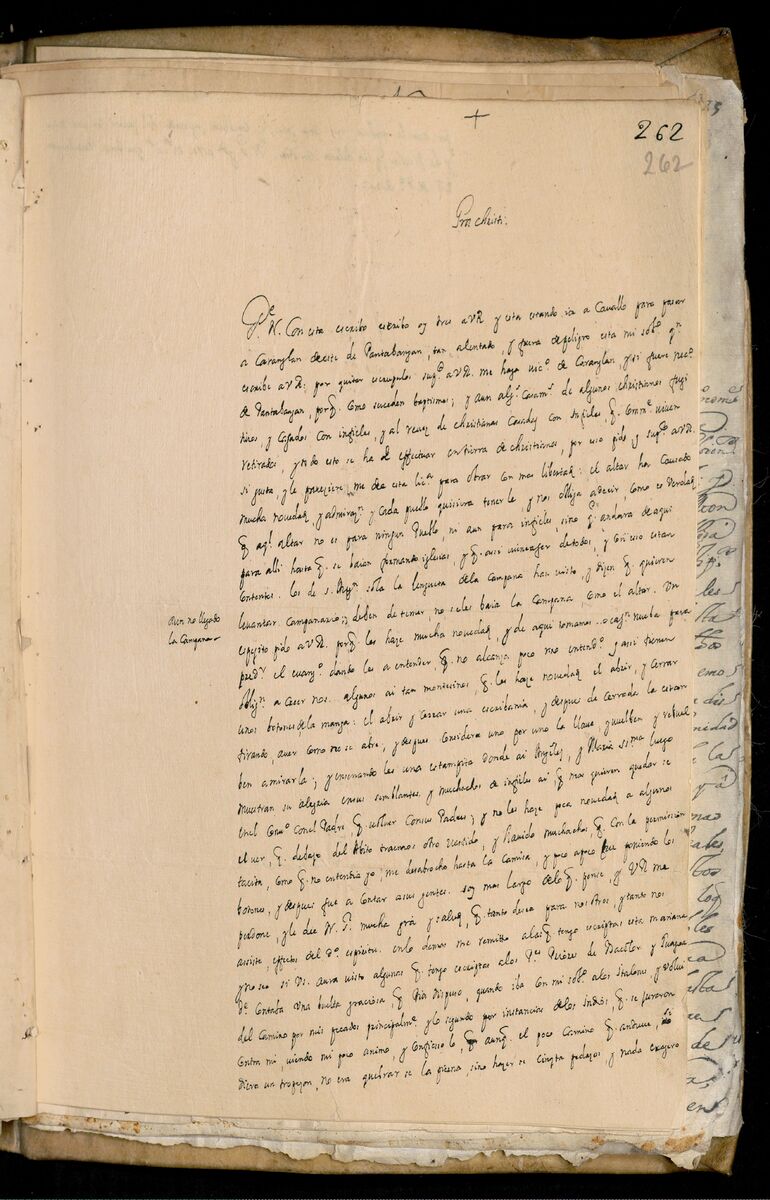 +
262
262
Grã Christi.
Pe. N. Con esta escribo escribo oy tres a VR y esta estando ia a Cavallo para pasar
a Caranglan desde de Pantabangan, tan alentado, y fuera de peligro esta mi sobo. qn.
escribe a VR: por quitar escrupulos supco. a VR. me haga vico. de Caranglan, y si fuere neco.
de Pantabangan, porq. como suceden baptismos; y aun algs. casamos. de algunos christianos fugi
tivos, y casados con infieles, y al revez de christianas casadas con infieles q. viven
retirados, y todo esto se ha de effectuar en tierra de christianos, por eso pido y supco. a VR.
si gusta, y le pareziere me de esta lica. para obrar con mas libertad: el altar ha causado
mucha novedad, y admiron. y cada pueblo quisiera tenerle, y nos obliga a decir, como es verdad,
q. aql. altar no es para ningun Pueblo, ni aun para infieles, sino qe. andara de aqui
para alli hasta q. se baian formando iglesias, y q. assi es de todos, y con eso estan
contentos. los de s. sola la lengueta de la campana han visto, y dizen q. quieren
levantar campanario; deben de temer, no se les baia la campana como el altar. Un
aun no llegado
la Campana
espejito pido a VR. porq. les haze mucha novedad, y de aqui tomamos ocaon. mucha para
predr. el evango. dandoles a entender q. no alcanza poco mo entendo. y assi tienen
a creer nos. algunos ai tan montesinos, q. les haze novedad el abrir, y cerrar
unos botones de la manga: el abrir y cerrar una escribania, y despues de cerrada la estan
tirando, a ver como no se abre, y despues considera uno por uno la llave y vuelben y rebuel
ben a mirarla; y enseñandoles una estampita donde ai Angeles, y Maria ssma. luego
muestran su alegria en sus semblantes, y muchachos de infieles ai q. mas quieren quedarse
en el Convo. con el Padre, q. volver con sus Padres; y no les haze poca novedad a algunos
el ver, q. debajo del Abito traemos otro vestido, y q. con la permission
tacita, como q. no entendia yo; me desabrocho hasta la camisa, y poco a poco fue poniendo los
botones, y despues fue a contar a sus gentes. soy mas largo de lo q. pense, y VR me
perdone, y le dee N. Sr. mucha grã y salud, q. tanto deseo para nosotros, y tanto nos
assiste, effectos del So. espiritu. en lo demas me remitto a las q. tengo escriptas esta mañana
y no se si Vs. aura visto algunas q. tengo escriptas a los Ps. Priores de Bacolor y
De. contaba una buelta graciosa q. Dios dispuso, quando iba con mi sobo. a los Italones, y volvi
del camino por mis pecados principalme. y lo segundo por instancias de los indios, q. se juraron
contra mi, viendo mi poco animo, y confiesolo, q. aunq. el poco camino q. anduve, si
diera un tropezon, no era quebrarse la pierna, sino hazerse cinqta. pedazos, y nada exagero